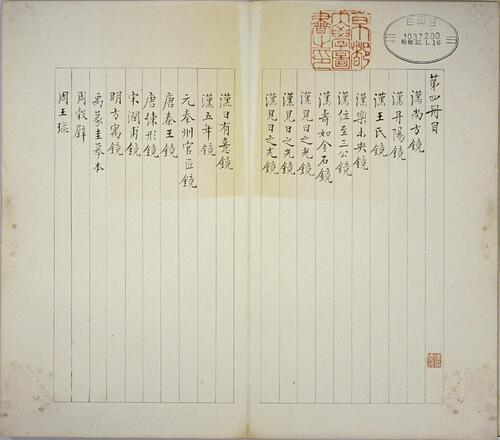 第四冊目
漢尚方鏡
漢丹陽鏡
漢王氏鏡
漢樂未央鏡
漢位至三公鏡
漢壽如金石鏡
漢見日之光鏡
漢見日之光鏡
漢見日之光鏡
漢日有憙鏡
漢五年鏡
元秦州官匠鏡
唐秦王鏡
唐律形鏡
宋湖甫鏡
明方寓鏡
禹蒙圭摹本
周穀璧
周王
京都
大學圖
書之印
1037200
昭和32.1.16